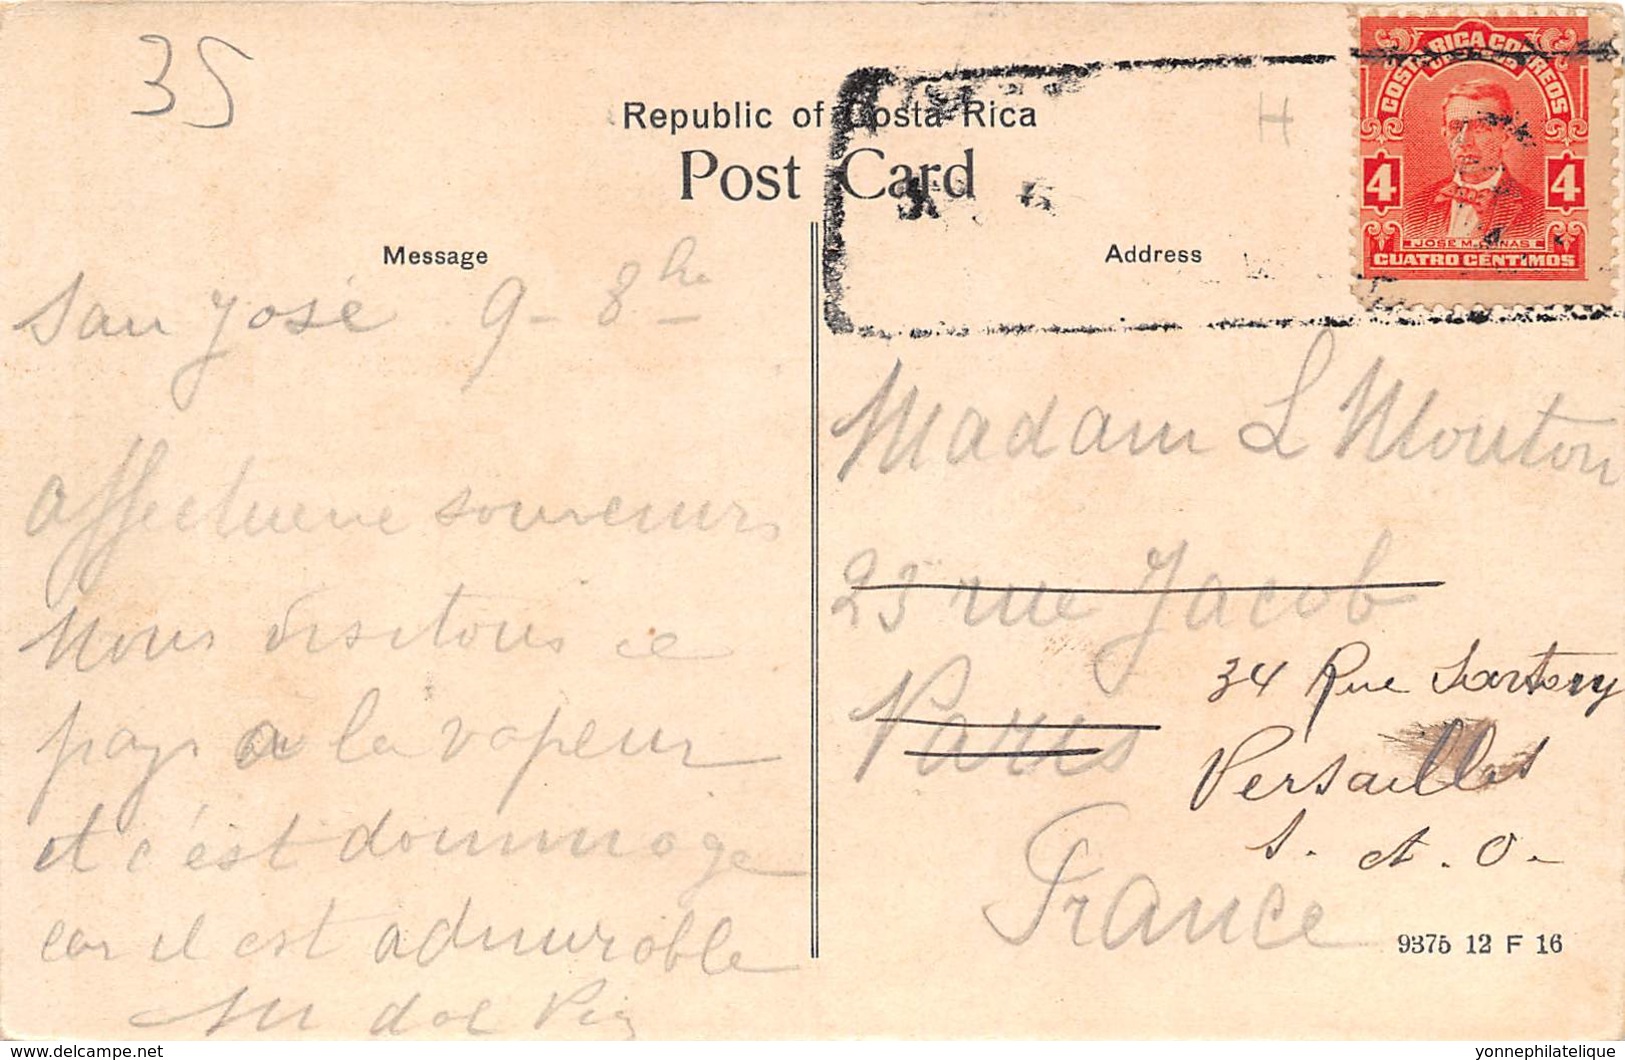 35
Republic of Costa Rica
Post Card
H
COSTA RICA CORREOS
4 4
CUATRO CENTIMOS
Message
Address
San José 9 - 8 bre
Affectueux souvenirs
Nous visitons ce
pays a la vapeur
et c'est dommage
car il est admirable
Madam L Mouton
23 rue Jacob
Paris
France
34 Rue
Versailles
S. et. O.
9375 12 F 16
delcampe.net
yonnephilatelique